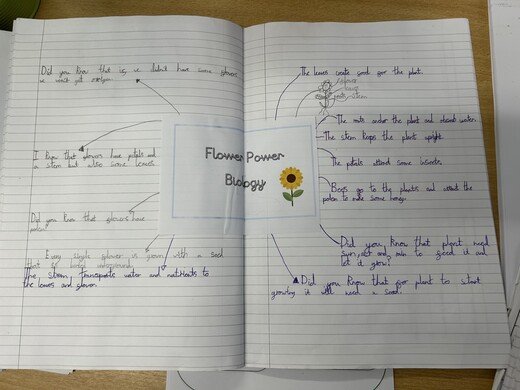 Did you know that is, we didn't have some flowers
we wont get oxigen.
I know that flowers have petals and
a stem but also some leaves.
Did you know that flowers have
polen
Every single flower is grown with a seed
that is being underground.
The stem transports water and nutrients to
the leaves and flower.
Flower Power
Biology
The leaves create food for the plant.
flower
leaves
roots stem
The roots anchor the plant and absorb water.
The stem keeps the plant upright.
The petals attract some insects.
Bees go to the plants and the
polen to make some honey.
Did you know that plant need
sun, and rain to feed it and
let it grow?
Did you know that for plant to start
growing it will need a seed.